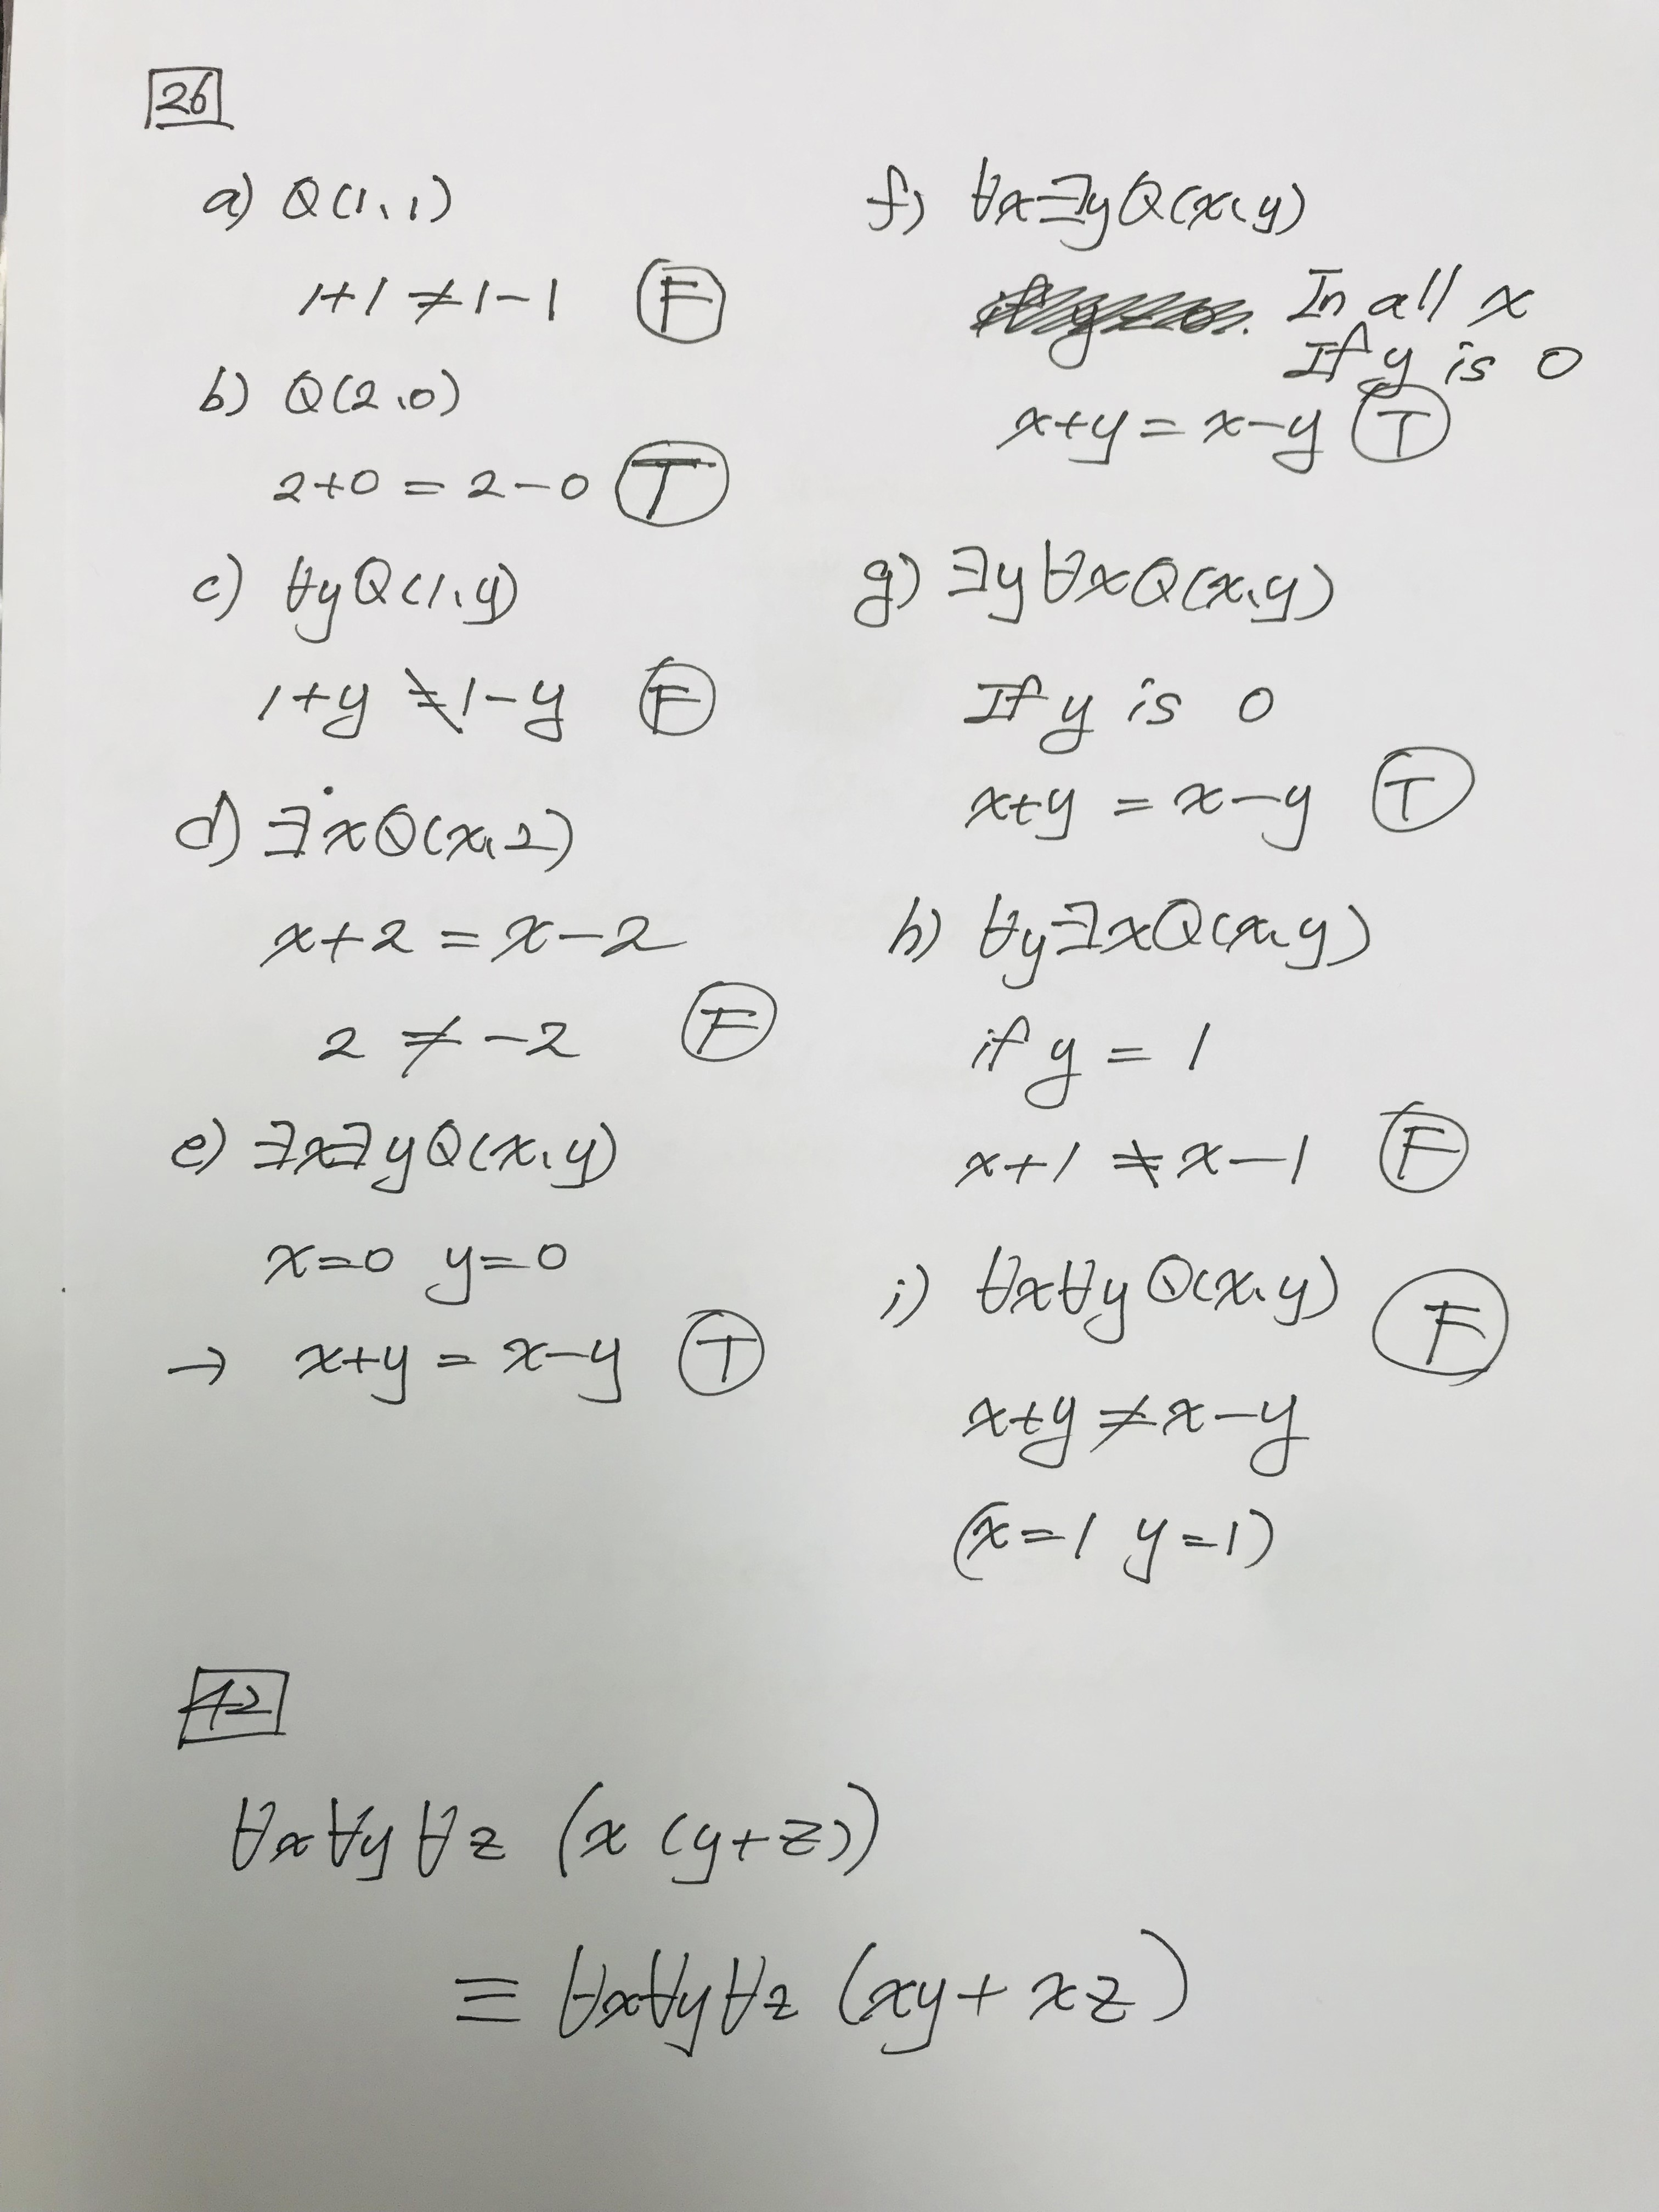 26
a) Q(1,1)
1+1 ≠ 1-1 F
b) Q(2,0)
2+0 = 2-0 T
c) ∀yQ(1,y)
1+y ≠ 1-y F
d) ∃xQ(x,2)
x+2 = x-2
2 ≠ -2 F
e) ∃x∃yQ(x,y)
x=0 y=0
→ x+y = x-y T
f) ∀x∃yQ(x,y)
In all x
If y is 0
x+y = x-y T
g) ∃y∀xQ(x,y)
If y is 0
x+y = x-y T
h) ∀y∃xQ(x,y)
if y = 1
x+1 ≠ x-1 F
i) ∀x∀yQ(x,y) F
x+y ≠ x-y
(x=1 y=1)
42
∀x∀y∀z (x(y+z))
≡ ∀x∀y∀z (xy+xz)